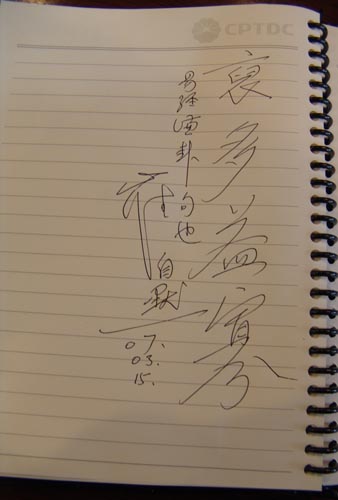 CPTDC
裒多益寡
易经谦卦句也
崔自默
07.
03.
15.